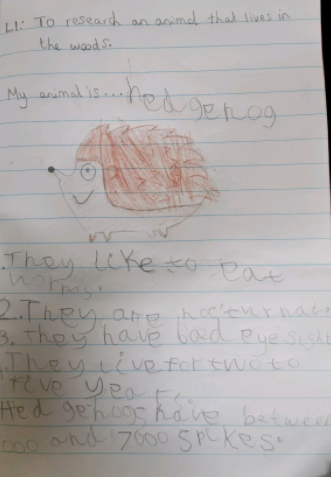 LI: To research an animal that lives in
the woods.
My animal is... hedgehog
. They like to eat
worms.
2. They are nocturnal.
3. They have bad eye sight
. They live for two to
five year
Hedgehogs have between
000 and 7000 spikes.